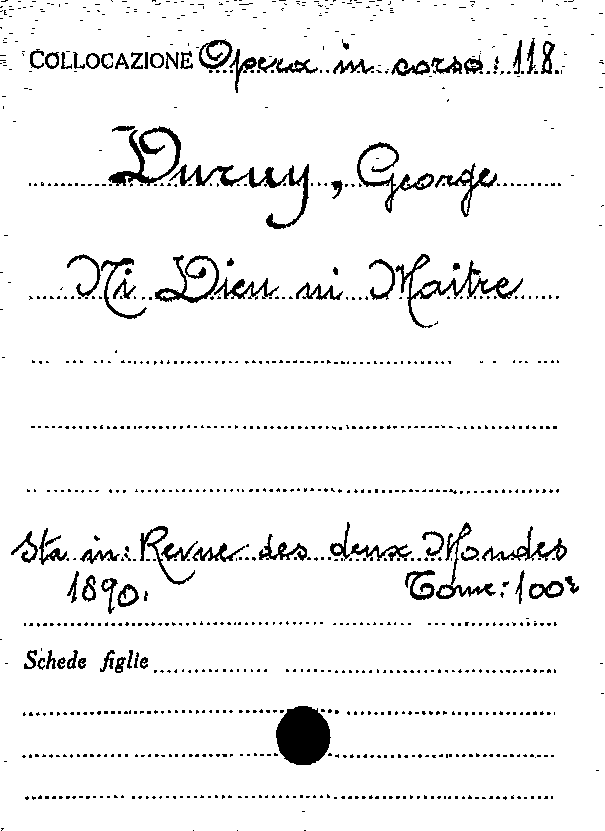 COLLOCAZIONE Opera in corso: 118.
Duruy, George
Ni Dieu ni Maitre
Sta in: Revue des deux Mondes
1890. Tome: 100e
Schede figlie